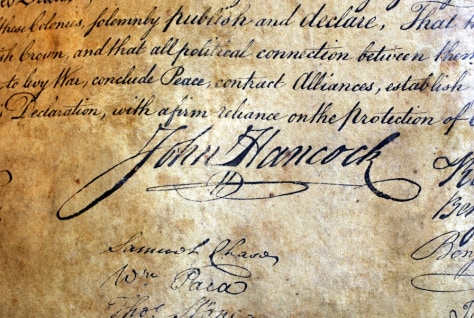 these Colonies, solemnly publish and declare, That
Crown, and that all political connection between them
to levy War, conclude Peace, contract Alliances, establish
Declaration, with a firm reliance on the protection of
John Hancock
Samuel Chase
Wm Paca
Thos
Ben